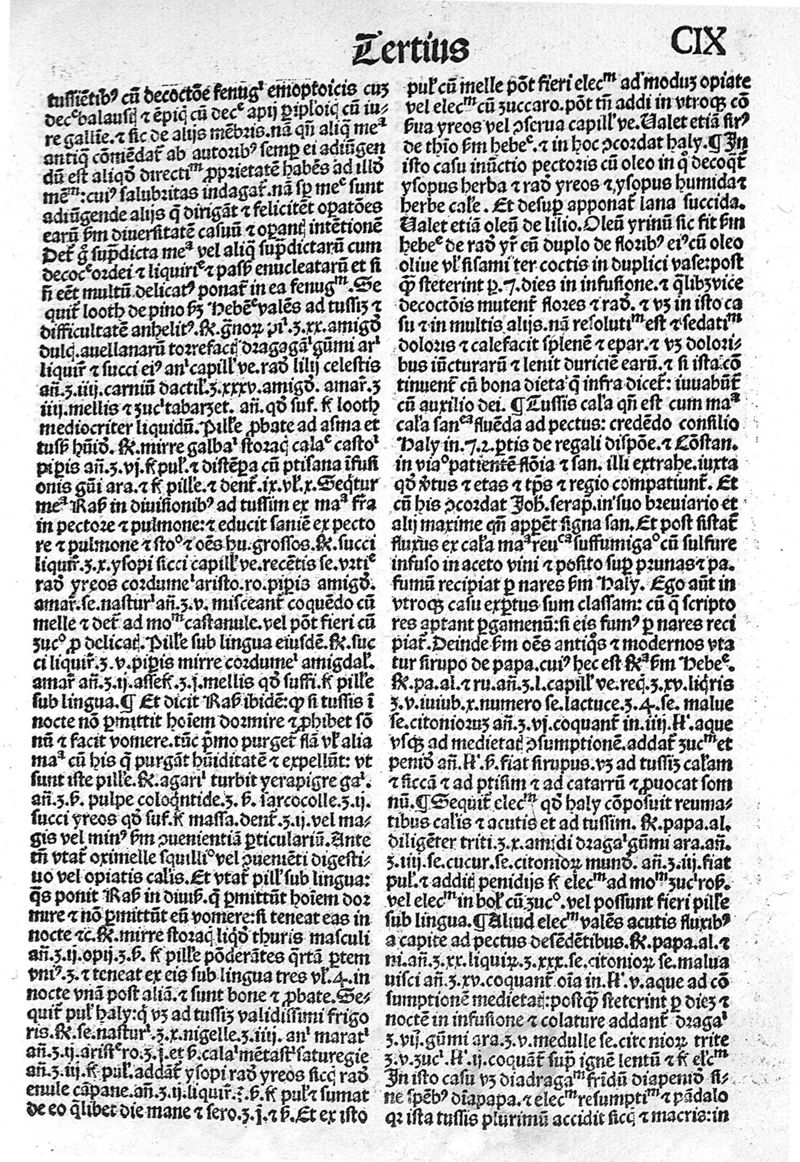 Tertius
CIX
tussiētibꝰ cū decoctōe fenugͥ emoptoicis cuʒ
decͤ balaustiꝝ ⁊ ēpiq̄ cū decͤ apij ꝑiploiq̄ cū iu⸗
re galline.⁊ sic de alijs mēbris.nā qn̄ aliq̄ meᵃ
antiq̄ cōmēdat̄ ab autoribꝰ semꝑ ei adiūgen
dū est aliqd̄ directiᵐ ꝓprietatē habēs ad illd̄
mēᵐ:cuiꝰ salubritas indagat̄.nā sꝑ meͤ sunt
adiūgende alijs q̄ dirigāt ⁊ felicitēt oꝑatōes
earū ẜm diuersitatē casuū ⁊ oꝑantꝭ intētionē
Det̄ g̊ supͣdicta meᵃ vel aliq̄ supͣdictarū cum
decocͤ ordei ⁊ liquiriͤ ⁊ passꝝ enucleatarū et si
nō eēt multū delicatꝰ ponat̄ in ea fenugᵐ. Se
quit̄ looth de pino ẜm Hebēͤ valēs ad tussiʒ ⁊
difficultatē anhelitꝰ. ℞.gᷓnoꝝ piͥ.ʒ.xx.amigd̄
dulcꝭ.auellanarū torrefacꝭ dragagāͥ gūmi arͥ
liquir̄ ⁊ succi eiꝰ anͥ capillͥ ve.rad̄ lilij celestis
an̄.ʒ.iiij.carniū dactil̄.ʒ.xxxv.amigd̄.amar̄.ʒ
iiij.mellis ⁊ ʒucͥ tabarzet. an̄.qd̄ suf.f̄ looth
mediocriter liquidū. Pille ꝓbate ad asma et
tussꝭ hūid̄. ℞.mirre galbaͥ storacꝭ calaͤ castoͥ
piꝑis an̄.ʒ.vj.f̄ pul̄.⁊ distēꝑa cū ptisana īfusi
onis gūi ara.⁊ f̄ pille.⁊ dent̄.ix.vl̄.x. Seqt̄ur
meᵃ Rasꝭ in diuisionibꝰ ad tussim ex maᵃ frͣa
in pectore ⁊ pulmone:⁊ educit saniē ex pecto
re ⁊ pulmone ⁊ stoᵒ ⁊ oēs hu.grossos. ℞.succi
liquir̄.ʒ.x.ysopi sicci capillͥ ve.recētis se.vrtiͤ
rad̄ yreos cordumeͥ aristo.ro.piꝑis amigd̄.
amar̄.se.nasturͥ an̄.ʒ.v. misceant̄ coquēdo cū
melle ⁊ det̄ ad moᵐ castanule.vel pōt fieri cū
ʒucᵒ ꝓ delicatꝭ. Pille sub lingua eiusdē. ℞.suc
ci liquir̄.ʒ.v.piꝑis mirre cordumeͥ amigdal̄.
amar̄ an̄.ʒ.ij.assef̄.ʒ.j.mellis qd̄ suffi.f̄ pille
sub lingua. ¶ Et dicit Rasꝭ ibidē:ꝙ si tussis ī
nocte nō ꝑmittit hoīem dormire ⁊ ꝓhibet sō
nū ⁊ facit vomere.tūc pͥmo purget̄ flā vl̄ alia
maᵃ cū his q̄ purgāt hūiditatē ⁊ expellūt: vt
sunt iste pille. ℞.agariͥ turbit yerapigre gaͥ.
an̄.ʒ.ß. pulpe coloqntide.ʒ.ß. sarcocolle.ʒ.ij.
succi yreos qd̄ suf.f̄ massa.dent̄.ʒ.ij.vel ma⸗
gis vel minꝰ ẜm ꝯuenientiā ꝑticulariū. Ante
tn̄ vtat̄ oximelle squilliᵒ vel ꝯueniēti digesti⸗
uo vel opiatis calis. Et vtat̄ pill̄ sub lingua:
qᷓs ponit Rasꝭ in diuisꝭ. q̄ ꝑmittūt hoīem dor
mire ⁊ nō ꝑmittūt eū vomere:si teneat eas in
nocte ⁊c. ℞.mirre storacꝭ liqd̄ thuris masculi
an̄.ʒ.ij.opij.ʒ.ß. f̄ pille pōderātes qͣrtā ꝑtem
vniꝰ.ʒ.⁊ teneat ex eis sub lingua tres vl̄.4.in
nocte vnā post aliā.⁊ sunt bone ⁊ ꝓbate. Se⸗
quit̄ pul̄ haly:q̄ vʒ ad tussiʒ validissimi frigo
ris. ℞.se.nasturͥ.ʒ.x.nigelle.ʒ.iiij.anͥ maratͥ
an̄.ʒ.ij.aristēro.ʒ.j.et ß.calaͥ mētastͥ saturegie
an̄.ʒ.iij.f̄ pul̄.addat̄ ysopi rad̄ yreos siccꝭ rad̄
enule cāpane.an̄.ʒ.ij.liquir̄.ʒ.ß.f̄ pul̄ ⁊ sumat
de eo q̄libet die mane ⁊ sero.ʒ.j.⁊ ß. Et ex isto
pul̄ cū melle pōt fieri elecᵐ ad moduʒ opiate
vel elecᵐ cū zuccaro.pōt tn̄ addi in vtroqꝫ cō
ẜua yreos vel ꝯserua capillͥ ve. Ualet etiā sirꝰ
de thīo ẜm hebeͤ.⁊ in hoc ꝯcordat haly. ¶ In
isto casu inūctio pectoris cū oleo in q̊ decoqt̄
ysopus herba ⁊ rad̄ yreos ⁊ ysopus humida ⁊
herbe cale. Et desuꝑ apponat̄ lana succida.
Ualet etiā oleū de lilio. Oleū yrinū sic fit ẜm
hebeͤ de rad̄ yr̄ cū duplo de floribꝰ eiꝰ cū oleo
oliue vl̄ sisami ter coctis in duplici vase:post
qͣ steterint ꝑ.7.dies in infusione.⁊ q̄libʒ vice
decoctōis mutent̄ flores ⁊ rad̄.⁊ vʒ in isto ca
su ⁊ in multis alijs.nā resolutiᵐ est ⁊ sedatiᵐ
doloris ⁊ calefacit splenē ⁊ epar.⁊ vʒ dolori⸗
bus iūcturarū ⁊ lenit duriciē earū.⁊ si ista cō
tinuent̄ cū bona dieta q̄ infra dicet̄: iuuabūt̄
cū auxilio dei. ¶ Tussis cal̄a qn̄ est cum maᵃ
cal̄a sanᵉᵃ fluēda ad pectus: credēdo consilio
Haly in.7.2.ꝑtis de regali dispōe.⁊ Cōstan.
in viaᵒ patientē flōia ⁊ san. illi extrahe.iuxta
qd̄ v̄tus ⁊ etas ⁊ tp̄s ⁊ regio compatiunt̄. Et
cū his ꝯcordat Joh̄.serap̄.in suo breuiario et
alij maxime qn̄ appēt signa san. Et post sistat̄
fluxus ex cal̄a maᵃ reuᶜᵃ suffumigaᵒ cū sulfure
infuso in aceto vini ⁊ posito suꝑ prunas ⁊ pa.
fumū recipiat ꝑ nares ẜm Haly. Ego aūt in
vtroqꝫ casu exꝑtus sum classam: cū q̄ scripto
res aptant ꝑgamenū:si eis fumꝰ ꝑ nares reci
piat̄. Deinde ẜm oēs antiqͦs ⁊ modernos vta
tur sirupo de papa.cuiꝰ hec est ℞ᵃ ẜm Hebeͤ.
℞.pa.al.⁊ ru.an̄.ʒ.l.capillͥ ve.req̄.ʒ.xv.liqris
ʒ.v.iuiub.x.numero se.lactuce.ʒ.4.se. malue
se.citonioruʒ an̄.ʒ.vj.coquant̄ in.iiij.℔. aque
vsqꝫ ad medietatꝭ ꝯsumptionē.addat̄ ʒucᵐ et
penid̄ an̄.℔.ß.fiat sirupus.vʒ ad tussiʒ cal̄am
⁊ siccā ⁊ ad ptisim ⁊ ad catarrū ⁊ ꝓuocat som
nū. ¶ Sequit̄ elecᵐ qd̄ haly cōposuit reuma⸗
tibus calis ⁊ acutis et ad tussim. ℞.papa.al.
diligēter triti.ʒ.x.amidi dragaͥ gūmi ara.an̄.
ʒ.iiij.se.cucur.se.citonioꝝ mund̄. an̄.ʒ.iij.fiat
pul̄.⁊ additꝭ penidijs f̄ elecᵐ ad moᵐ ʒucͥ rosꝭ.
vel elecᵐ in bol̄ cū ʒucᵒ. vel possunt fieri pille
sub lingua. ¶ Aliud elecᵐ valēs acutis fluxibꝰ
a capite ad pectus desēdētibus. ℞.papa.al.⁊
ni.an̄.ʒ.xx.liquiꝝ.ʒ.xxx.se.citonioꝝ se.malua
uisci an̄.ʒ.xv.coquant̄ oīa in.℔.v.aque ad cō
sumptionē medietatꝭ:postqͣ stetcrint ꝑ dieʒ ⁊
noctē in infusione ⁊ colature addant̄ dragaͥ
ʒ.vij.gūmi ara.ʒ.v.medulle se.citonioꝝ trite
ʒ.v.ʒucͥ.℔.ij.coquat̄ suꝑ ignē lentū ⁊ f̄ elcᵐ
In isto casu vʒ diadragaᵐ fridū diapenid̄ si⸗
ne speb̄ꝰ dīapapa.⁊ elecᵐ resumptiᵐ ⁊ pādalo
qꝛ ista tussis plurimū accidit siccꝭ ⁊ macris:in